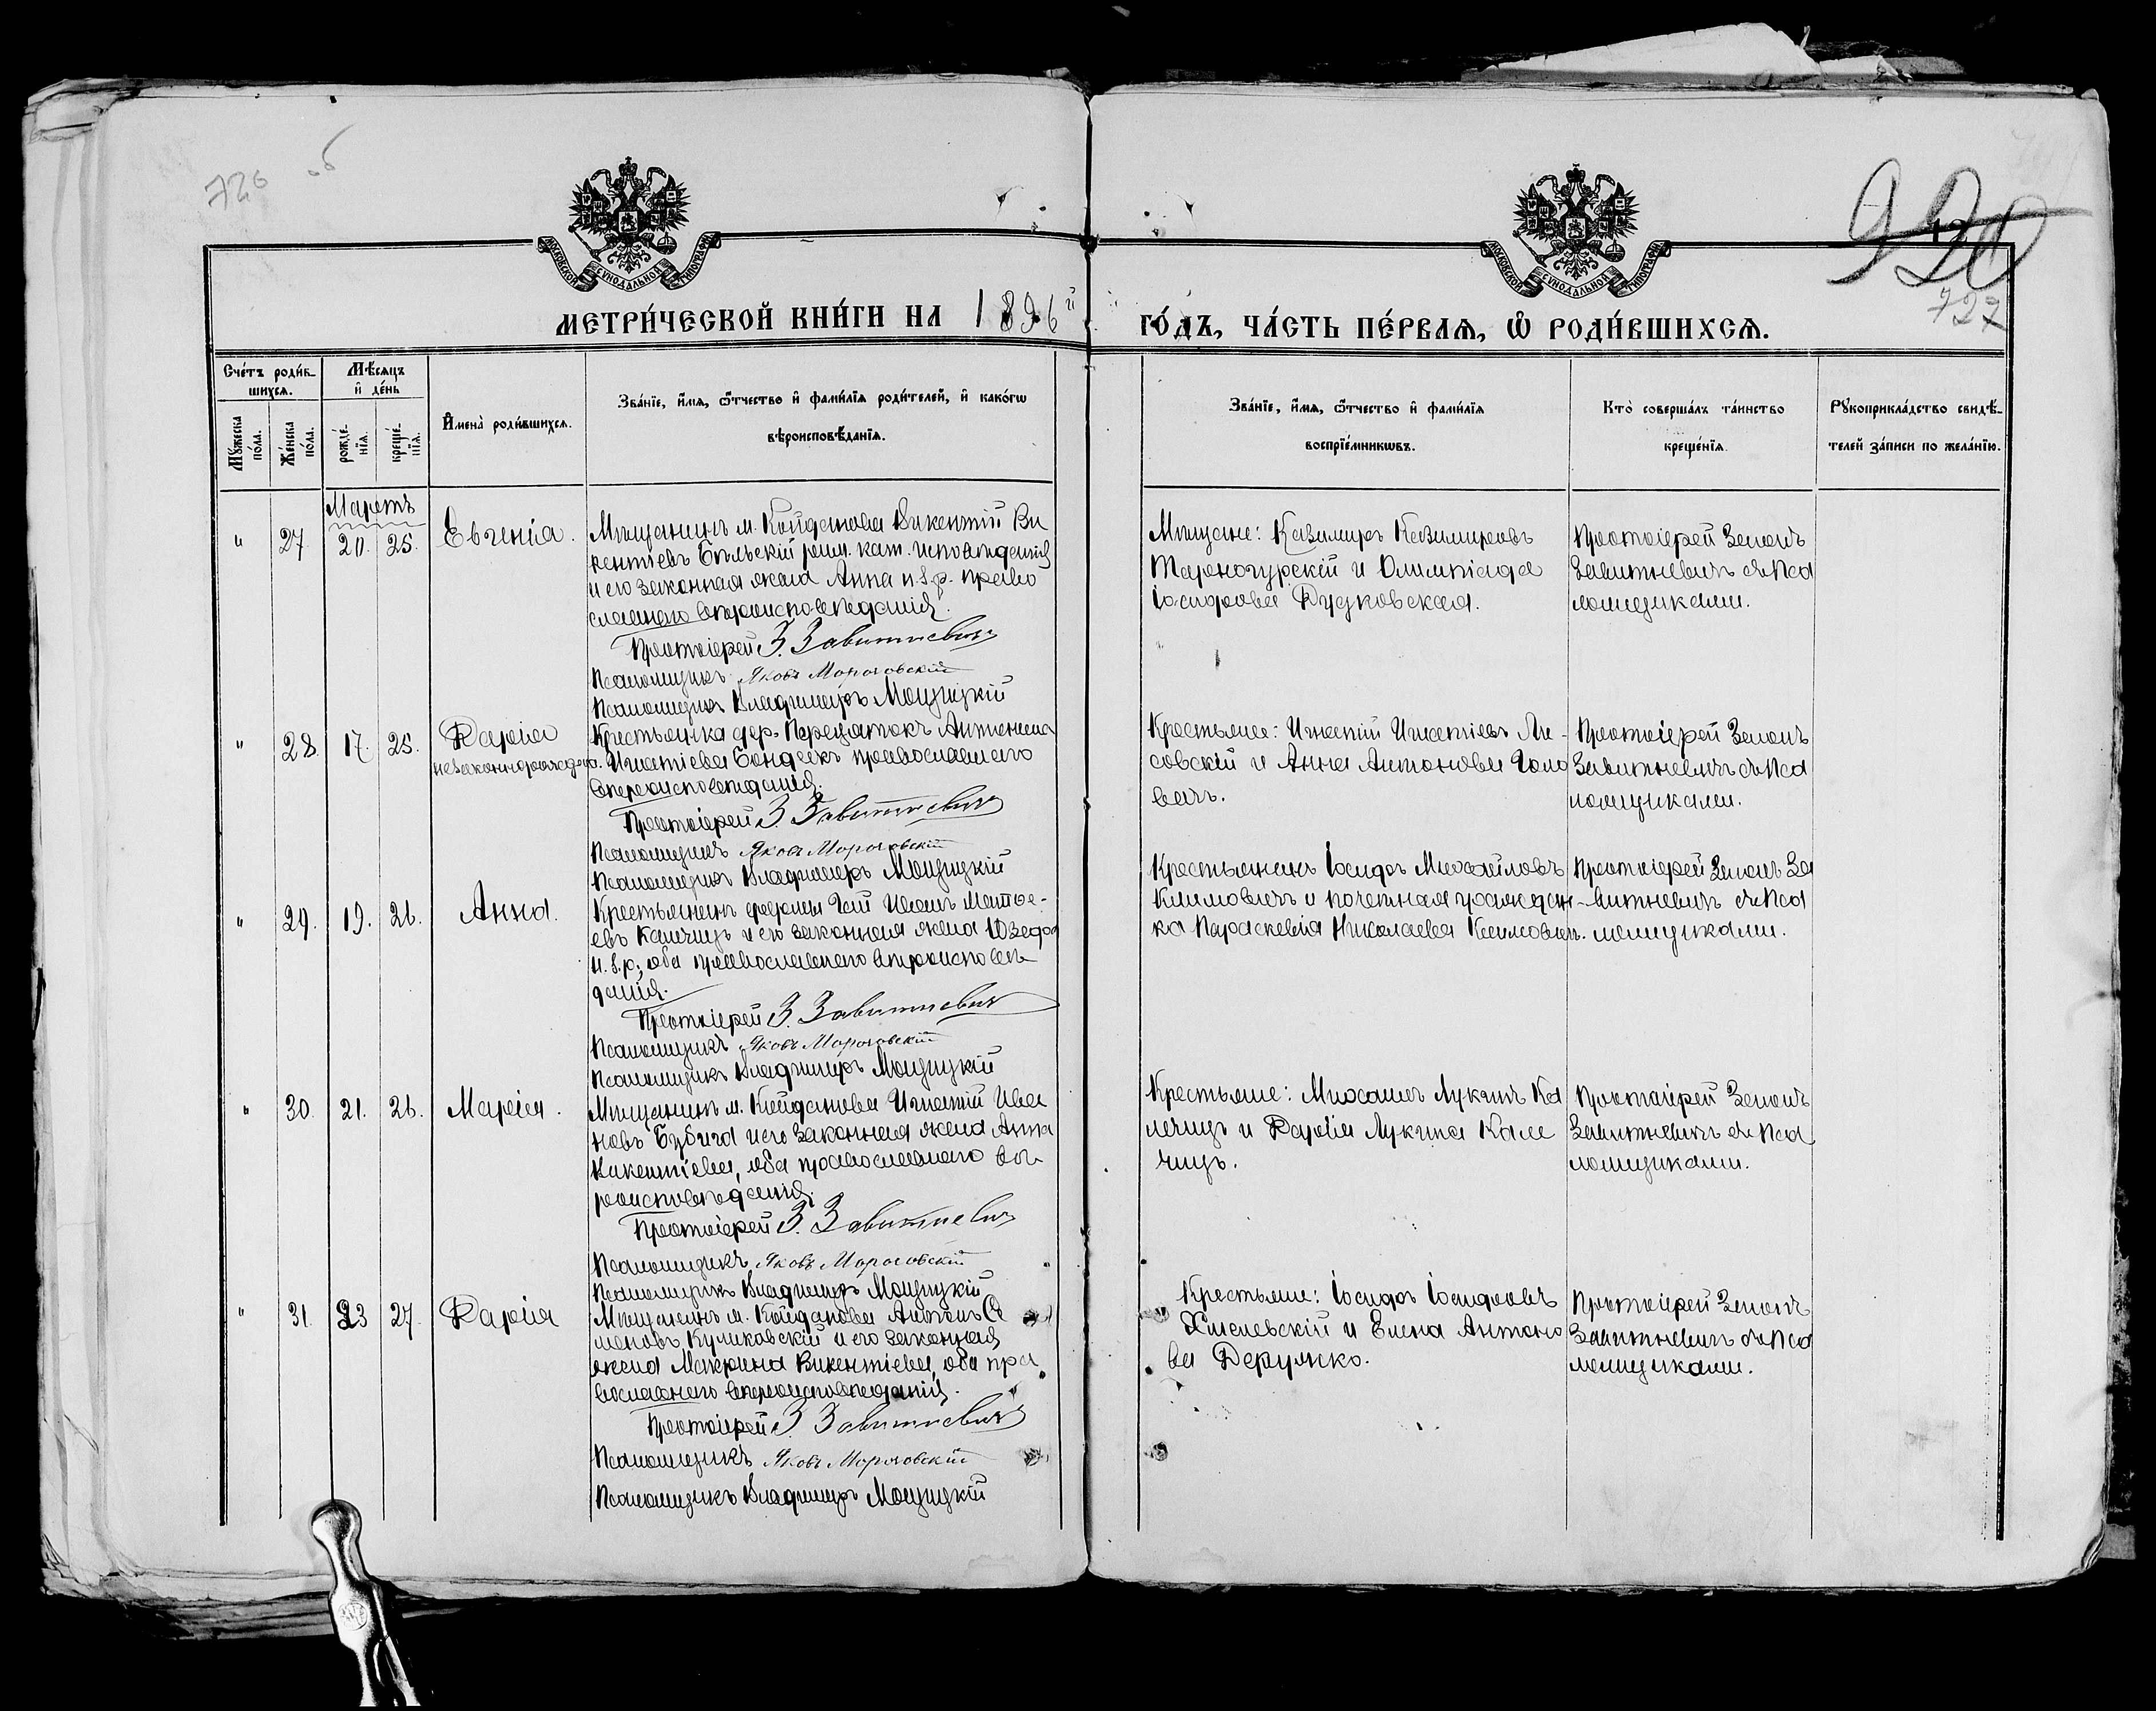 726 об
920
12
727
МОСКОВСКОЙ СѴНОДАЛЬНОЙ ТИПОГРАФІИ
МОСКОВСКОЙ СѴНОДАЛЬНОЙ ТИПОГРАФІИ
МЕТРИ́ЧЕСКОЙ КНИ́ГИ НА 1896й ГО́ДЪ, ЧА́СТЬ ПЕ́РВАѦ, Ѡ РОДИ́ВШИХСѦ.
Сче́тъ роди́в-
шихсѧ.
Мꙋ́жеска по́ла.
Же́нска по́ла.
Мѣ́сѧцъ
и҆ де́нь
рожде́-
нїѧ.
креще́-
нїѧ.
И҆мена̀ роди́вшихсѧ.
Зва́нїе, и҆́мѧ, ѻ҆́тчество и҆ фами́лїѧ роди́телей, и҆ како́гѡ
вѣроисповѣ́данїѧ.
Зва́нїе, и҆́мѧ, ѻ҆́тчество и҆ фами́лїѧ
воспрїе́мникѡвъ.
Кто̀ соверша́лъ та́инство
креще́нїѧ.
Рꙋкоприкла́дство свидѣ́-
телей за́писи по жела́нїю.
Мартъ
" 27. 20. 25. Евгенія.
Мѣщанинъ м. Койданова Викентій Ви
кентіевъ Бѣльскій рим. кат. исповѣданія
и его законная жена Анна н.г.р. право
славнаго вѣроисповѣданія.
Протоіерей З. Завитневичъ
Псаломщикъ Яковъ Мороговскій
Псаломщикъ Владиміръ Мощицкій
Мѣщане: Казимиръ Казимировъ
Тарногурскій и Олимпіада
Іосифова Рудковская.
Протоіерей Зенонъ
Завитневичъ съ Пса
ломщиками.
" 28. 17. 25. Дарія
незаконнорожден.
Крестьянка дер. Передатокъ Антонина
Игнатіева Бондекъ православнаго
вѣроисповѣданія.
Протоіерей З. Завитневичъ
Псаломщикъ Яковъ Мороговскій
Псаломщикъ Владиміръ Мощицкій
Крестьяне: Игнатій Игнатіевъ Ли-
совскій и Анна Антонова Голо
вачъ.
Протоіерей Зенонъ
Завитневичъ съ Пса
ломщиками.
" 29. 19. 26. Анна.
Крестьянинъ фермы Гай Иванъ Матѳе-
евъ Каличицъ и его законная жена Юзефа
н.г.р., оба православнаго вѣроисповѣ-
данія.
Протоіерей З. Завитневичъ
Псаломщикъ Яковъ Мороговскій
Псаломщикъ Владиміръ Мощицкій
Крестьянинъ Іосифъ Михайловъ
Климовичъ и почетная граждан-
ка Параскевія Николаева Климовичъ.
Протоіерей Зенонъ За
витневичъ съ Пса
ломщиками.
" 30. 21. 26. Марія.
Мѣщанинъ м. Койданова Игнатій Ива
новъ Бубига и его законная жена Анна
Викентіева, оба православнаго вѣ-
роисповѣданія.
Протоіерей З. Завитневичъ
Псаломщикъ Яковъ Мороговскій
Псаломщикъ Владиміръ Мощицкій
Крестьяне: Михаилъ Лукинъ Ка
личицъ и Дарія Лукина Кали
чицъ.
Протоіерей Зенонъ
Завитневичъ съ Пса
ломщиками.
" 31. 23 27. Дарія
Мѣщанинъ м. Койданова Антонъ Се
меновъ Куликовскій и его законная
жена Макрина Викентіева, оба пра
вославнаго вѣроисповѣданія.
Протоіерей З. Завитневичъ
Псаломщикъ Яковъ Мороговскій
Псаломщикъ Владиміръ Мощицкій
Крестьяне: Іосифъ Іосифовъ
Хмелевскій и Елена Антоно
ва Демулко.
Протоіерей Зенонъ
Завитневичъ съ Пса
ломщиками.